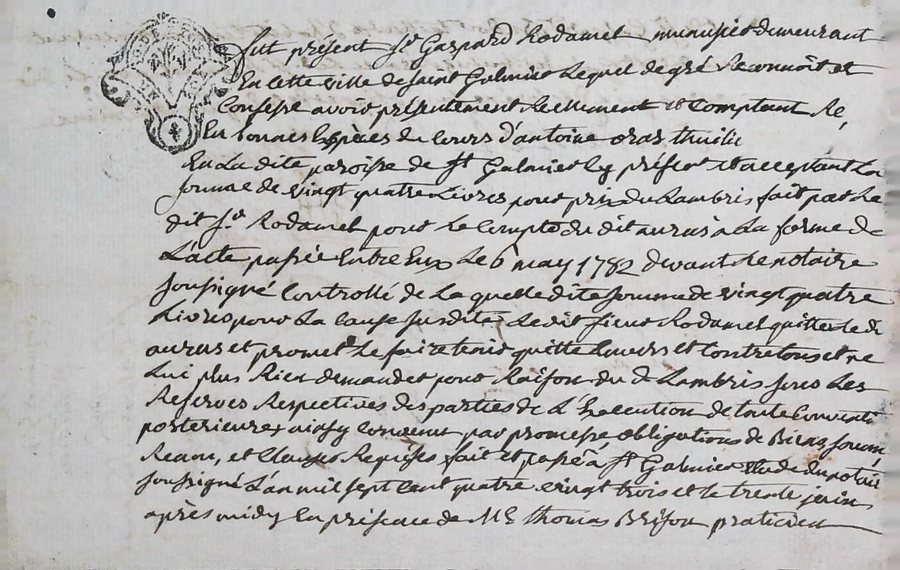 fut présent Sr. Gaspard Rodamel menusier demeurant
En cette ville de Saint Galmier Lequel de gré Reconnoit et
Confesse avoir présentement Réellement et Comptant Re,
En bonnes Espèces du Cours d'antoine
En La dite paroisse de St Galmier Cy présent et acceptant La
somme de vingt quatre Livres pour prix du Lambris fait par Le
dit Sr. Rodamel pour le Compte du dit auras à La forme de
L'acte passé Entre Eux Le 6 may 1782 devant Le notaire
soussigné Controllé de La quelle dite somme de vingt quatre
Livres pour La Cause susdite Le dit sieur Rodamel quitte Le d
auras et promet Le faire tenir quitte Envers et Contre tous et ne
Lui plus Rien demander pour Raison du d Lambris sous Les
Reserves Respectives des parties de L'Execution de toute Conventi
posterieures ainsy Convenu par promesse obligations de Biens
et Clauses Requises fait et passé a St Galmier Etude du notaire
soussigné L'an mil sept cent quatre vingt trois et le trente juin
après midy En présence de Me thomas Brison praticien